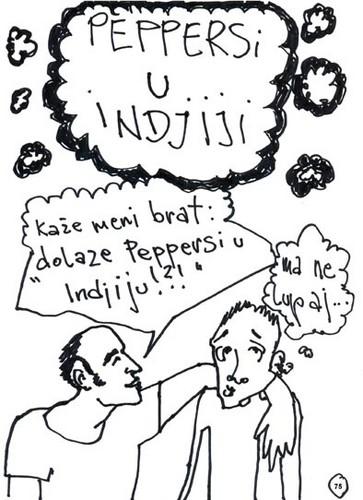 PEPPERSi
U
iNDJIJI
Kaže meni brat:
dolaze Peppersi u
"Indjiju!?!"
ma ne
lupaj...
78